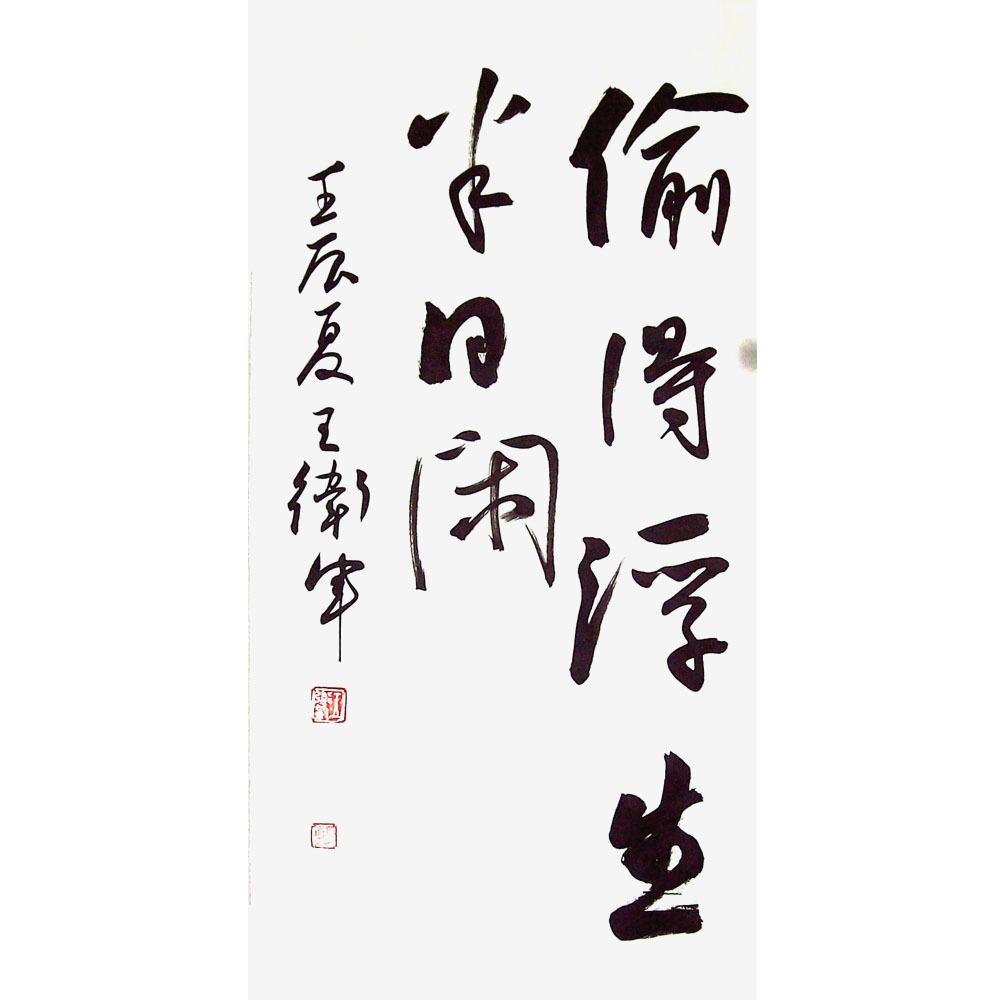 偷得浮生
半日闲
壬辰夏王衛军